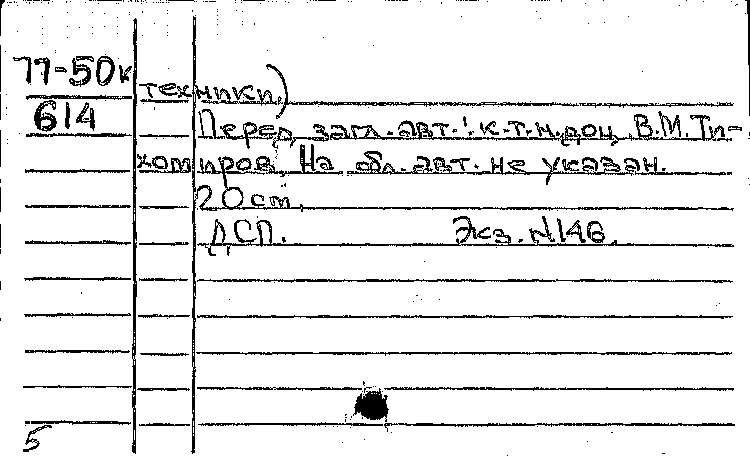 77-50к
техники)
614
Перед загл. авт.: к.т.н. доц. В.М. Ти-
хомиров. На обл. авт. не указан.
20 см.
ДСП. Экз. №146.
5